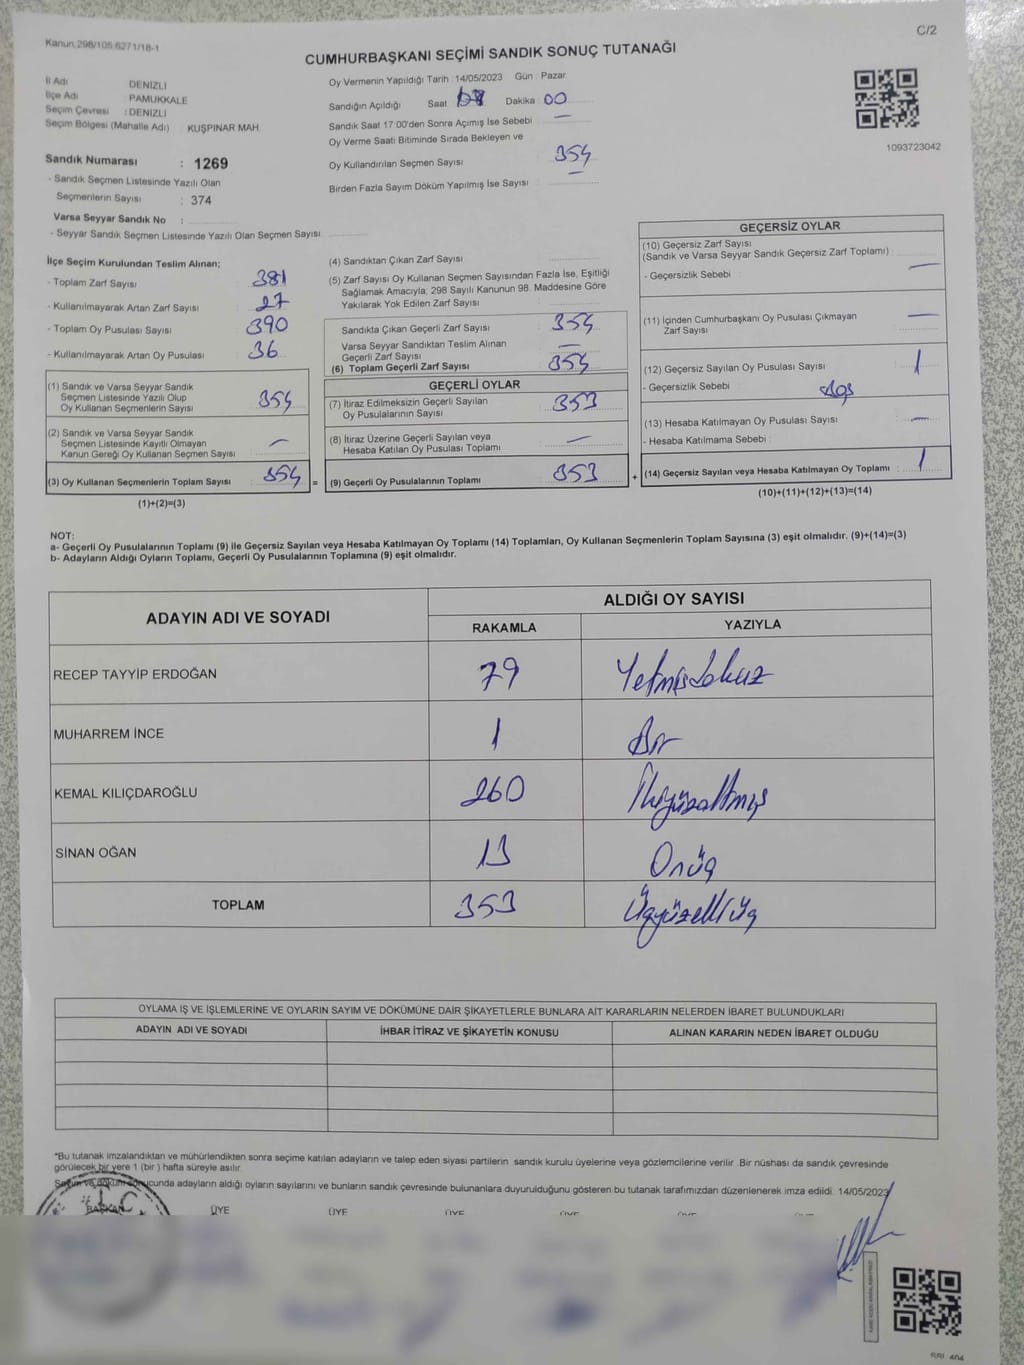 Kanun:298/105,6271/18-1
C/2
CUMHURBAŞKANI SEÇİMİ SANDIK SONUÇ TUTANAĞI
İl Adı DENİZLİ
İlçe Adı : PAMUKKALE
Seçim Çevresi : DENİZLİ
Seçim Bölgesi (Mahalle Adı) : KUŞPINAR MAH.
Sandık Numarası : 1269
- Sandık Seçmen Listesinde Yazılı Olan
Seçmenlerin Sayısı : 374
Varsa Seyyar Sandık No :
- Seyyar Sandık Seçmen Listesinde Yazılı Olan Seçmen Sayısı
Oy Vermenin Yapıldığı Tarih : 14/05/2023 Gün : Pazar
Sandığın Açıldığı Saat Dakika 00
Sandık Saat 17:00'den Sonra Açımış İse Sebebi : —
Oy Verme Saati Bitiminde Sırada Bekleyen ve
Oy Kullandırılan Seçmen Sayısı : 354
Birden Fazla Sayım Döküm Yapılmış İse Sayısı : —
1093723042
İlçe Seçim Kurulundan Teslim Alınan;
- Toplam Zarf Sayısı : 381
- Kullanılmayarak Artan Zarf Sayısı : 27
- Toplam Oy Pusulası Sayısı : 390
- Kullanılmayarak Artan Oy Pusulası : 36
(1) Sandık ve Varsa Seyyar Sandık
Seçmen Listesinde Yazılı Olup
Oy Kullanan Seçmenlerin Sayısı : 354
(2) Sandık ve Varsa Seyyar Sandık
Seçmen Listesinde Kayıtlı Olmayan
Kanun Gereği Oy Kullanan Seçmen Sayısı : —
(3) Oy Kullanan Seçmenlerin Toplam Sayısı : 354 =
(1)+(2)=(3)
(4) Sandıktan Çıkan Zarf Sayısı :
(5) Zarf Sayısı Oy Kullanan Seçmen Sayısından Fazla İse, Eşitliği
Sağlamak Amacıyla; 298 Sayılı Kanunun 98. Maddesine Göre
Yakılarak Yok Edilen Zarf Sayısı :
Sandıkta Çıkan Geçerli Zarf Sayısı : 354
Varsa Seyyar Sandıktan Teslim Alınan
Geçerli Zarf Sayısı : —
(6) Toplam Geçerli Zarf Sayısı : 354
GEÇERLİ OYLAR
(7) İtiraz Edilmeksizin Geçerli Sayılan
Oy Pusulalarının Sayısı : 353
(8) İtiraz Üzerine Geçerli Sayılan veya
Hesaba Katılan Oy Pusulası Toplamı : —
(9) Geçerli Oy Pusulalarının Toplamı : 353 +
GEÇERSİZ OYLAR
(10) Geçersiz Zarf Sayısı
(Sandık ve Varsa Seyyar Sandık Geçersiz Zarf Toplamı) : —
- Geçersizlik Sebebi :
(11) İçinden Cumhurbaşkanı Oy Pusulası Çıkmayan
Zarf Sayısı : —
(12) Geçersiz Sayılan Oy Pusulası Sayısı : 1
- Geçersizlik Sebebi :
(13) Hesaba Katılmayan Oy Pusulası Sayısı : —
- Hesaba Katılmama Sebebi :
(14) Geçersiz Sayılan veya Hesaba Katılmayan Oy Toplamı : 1
(10)+(11)+(12)+(13)=(14)
NOT:
a- Geçerli Oy Pusulalarının Toplamı (9) ile Geçersiz Sayılan veya Hesaba Katılmayan Oy Toplamı (14) Toplamları, Oy Kullanan Seçmenlerin Toplam Sayısına (3) eşit olmalıdır. (9)+(14)=(3)
b- Adayların Aldığı Oyların Toplamı, Geçerli Oy Pusulalarının Toplamına (9) eşit olmalıdır.
ADAYIN ADI VE SOYADI ALDIĞI OY SAYISI
RAKAMLA YAZIYLA
RECEP TAYYİP ERDOĞAN 79 Yetmişdokuz
MUHARREM İNCE 1 Bir
KEMAL KILIÇDAROĞLU 260 İkiyüzaltmış
SİNAN OĞAN 13 Onüç
TOPLAM 353 Üçyüzelliüç
OYLAMA İŞ VE İŞLEMLERİNE VE OYLARIN SAYIM VE DÖKÜMÜNE DAİR ŞİKAYETLERLE BUNLARA AİT KARARLARIN NELERDEN İBARET BULUNDUKLARI
ADAYIN ADI VE SOYADI İHBAR İTİRAZ VE ŞİKAYETİN KONUSU ALINAN KARARIN NEDEN İBARET OLDUĞU
*Bu tutanak imzalandıktan ve mühürlendikten sonra seçime katılan adayların ve talep eden siyasi partilerin sandık kurulu üyelerine veya gözlemcilerine verilir .Bir nüshası da sandık çevresinde
görülecek bir yere 1 (bir ) hafta süreyle asılır.
Seçim ve döküm sonucunda adayların aldığı oyların sayılarını ve bunların sandık çevresinde bulunanlara duyurulduğunu gösteren bu tutanak tarafımızdan düzenlenerek imza edildi. 14/05/2023
BAŞKAN ÜYE ÜYE ÜYE ÜYE ÜYE ÜYE